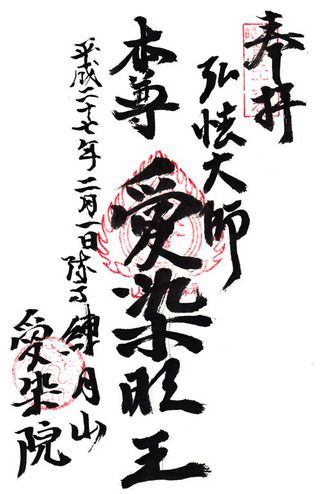 奉拝
弘法大師
本尊
愛染明王
平成二十七年二月一日
練月山
愛染院